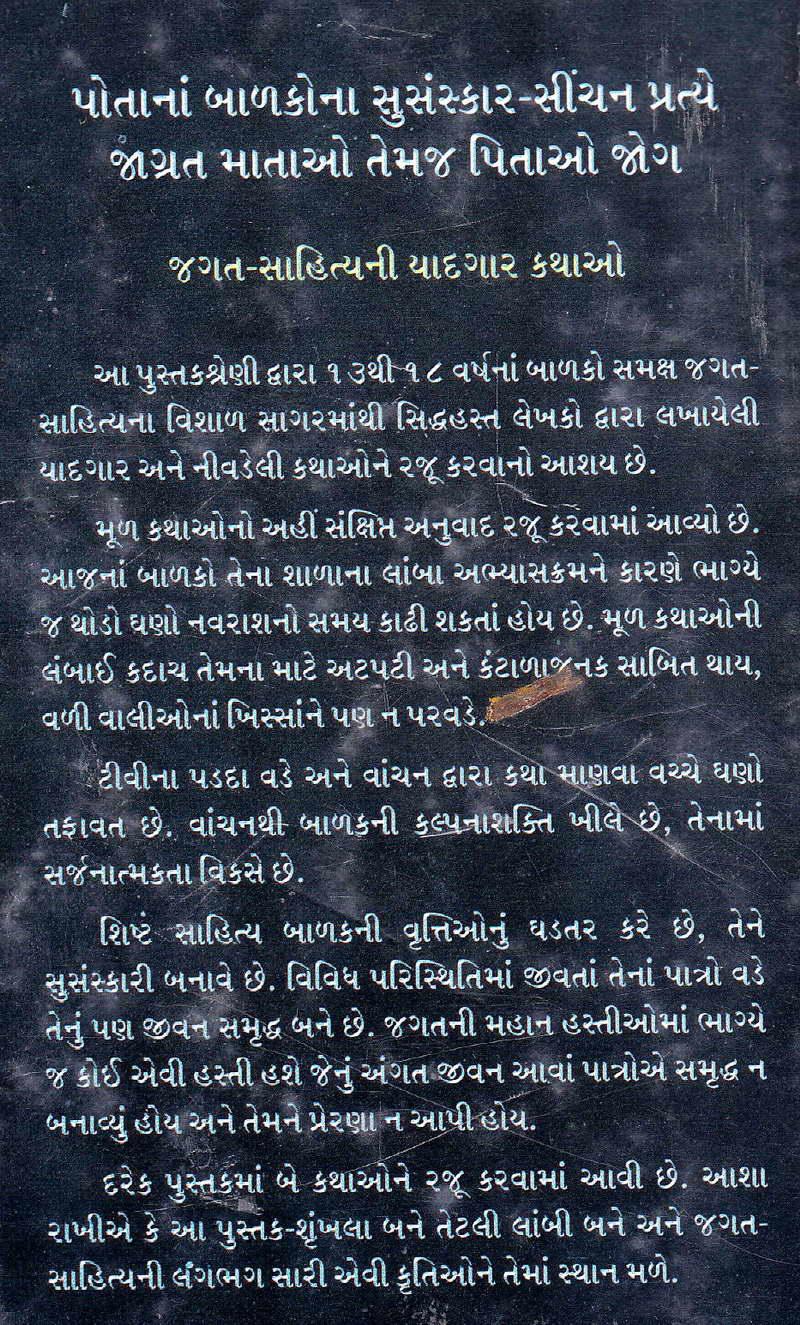 પોતાનાં બાળકોના સુસંસ્કાર-સીંચન પ્રત્યે
જાગ્રત માતાઓ તેમજ પિતાઓ જોગ
જગત-સાહિત્યની યાદગાર કથાઓ
આ પુસ્તકશ્રેણી દ્વારા ૧૩થી ૧૮ વર્ષનાં બાળકો સમક્ષ જગત-
સાહિત્યના વિશાળ સાગરમાંથી સિદ્ધહસ્ત લેખકો દ્વારા લખાયેલી
યાદગાર અને નીવડેલી કથાઓને રજૂ કરવાનો આશય છે.
મૂળ કથાઓનો અહીં સંક્ષિપ્ત અનુવાદ રજૂ કરવામાં આવ્યો છે.
આજનાં બાળકો તેના શાળાના લાંબા અભ્યાસક્રમને કારણે ભાગ્યે
જ થોડો ઘણો નવરાશનો સમય કાઢી શકતાં હોય છે. મૂળ કથાઓની
લંબાઈ કદાચ તેમના માટે અટપટી અને કંટાળાજનક સાબિત થાય,
વળી વાલીઓનાં ખિસ્સાંને પણ ન પરવડે.
ટીવીના પડદા વડે અને વાંચન દ્વારા કથા માણવા વચ્ચે ઘણો
તફાવત છે. વાંચનથી બાળકની કલ્પનાશક્તિ ખીલે છે, તેનામાં
સર્જનાત્મકતા વિકસે છે.
શિષ્ટ સાહિત્ય બાળકની વૃત્તિઓનું ઘડતર કરે છે, તેને
સુસંસ્કારી બનાવે છે. વિવિધ પરિસ્થિતિમાં જીવતાં તેનાં પાત્રો વડે
તેનું પણ જીવન સમૃદ્ધ બને છે. જગતની મહાન હસ્તીઓમાં ભાગ્યે
જ કોઈ એવી હસ્તી હશે જેનું અંગત જીવન આવાં પાત્રોએ સમૃદ્ધ ન
બનાવ્યું હોય અને તેમને પ્રેરણા ન આપી હોય.
દરેક પુસ્તકમાં બે કથાઓને રજૂ કરવામાં આવી છે. આશા
રાખીએ કે આ પુસ્તક-શૃંખલા બને તેટલી લાંબી બને અને જગત-
સાહિત્યની લગભગ સારી એવી કૃતિઓને તેમાં સ્થાન મળે.